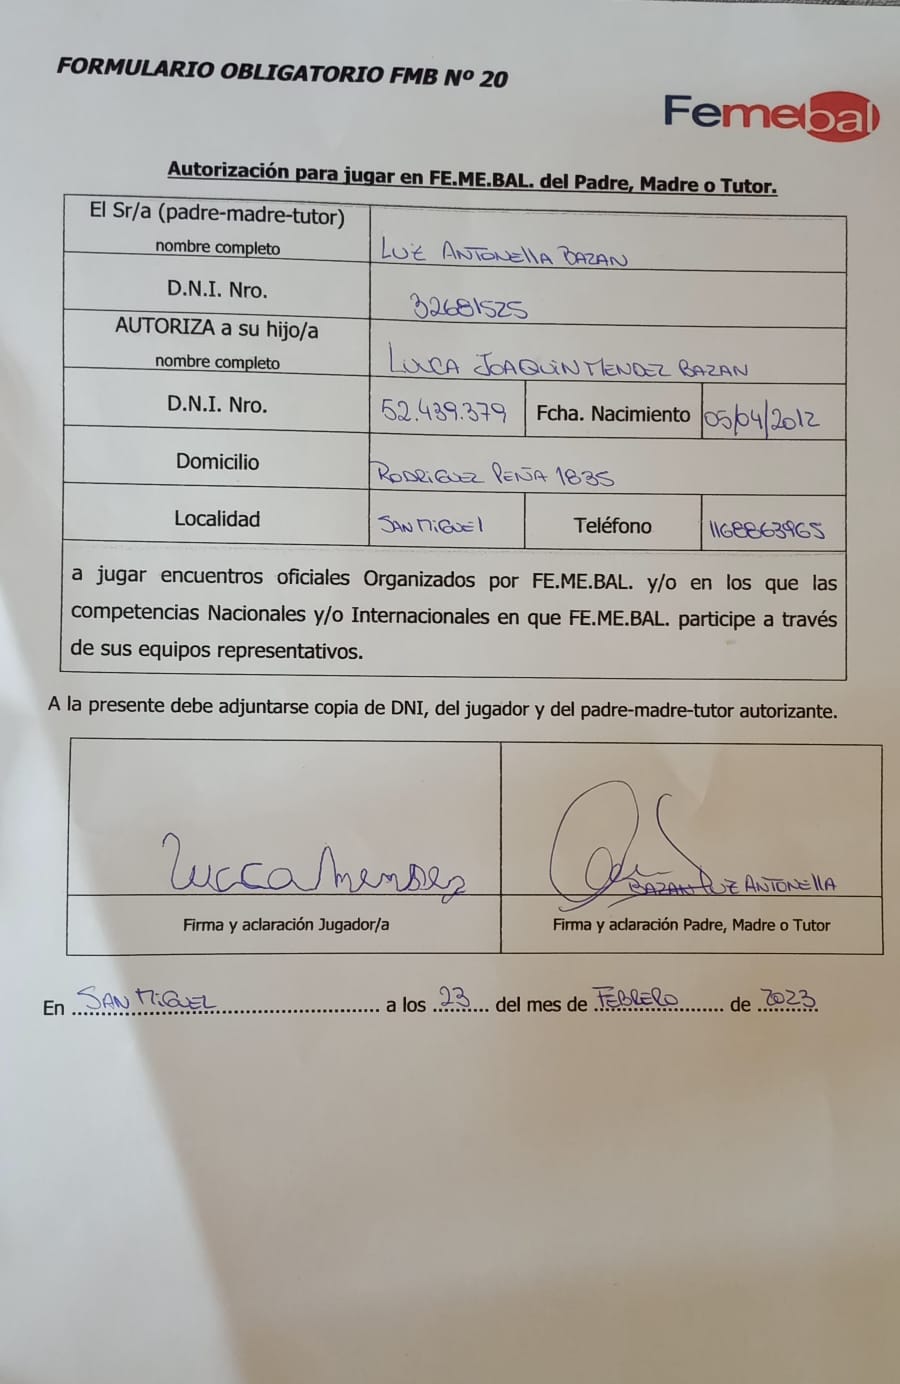 FORMULARIO OBLIGATORIO FMB Nº 20
Femebal
Autorización para jugar en FE.ME.BAL. del Padre, Madre o Tutor.
El Sr/a (padre-madre-tutor)
nombre completo
LUZ ANTONELLA BAZAN
D.N.I. Nro.
32681525
AUTORIZA a su hijo/a
nombre completo
LUCCA JOAQUIN MENDEZ BAZAN
D.N.I. Nro.
52.439.379
Fcha. Nacimiento
05/04/2012
Domicilio
RODRIGUEZ PEÑA 1835
Localidad
SAN MIGUEL
Teléfono
1168863965
a jugar encuentros oficiales Organizados por FE.ME.BAL. y/o en los que las
competencias Nacionales y/o Internacionales en que FE.ME.BAL. participe a través
de sus equipos representativos.
A la presente debe adjuntarse copia de DNI, del jugador y del padre-madre-tutor autorizante.
Lucca Mendez
BAZAN LUZ ANTONELLA
Firma y aclaración Jugador/a
Firma y aclaración Padre, Madre o Tutor
En SAN MIGUEL a los 23 del mes de FEBRERO de 2023